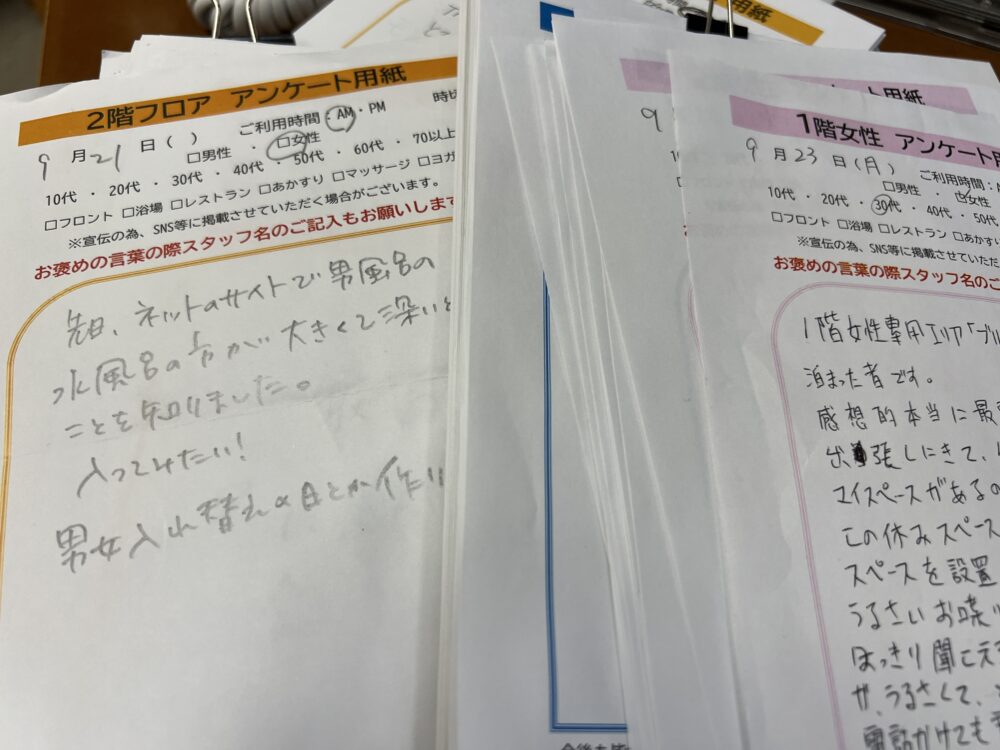 2階フロア アンケート用紙
9月21日( ) ご利用時間:AM・PM 時頃
□男性 ・ □女性
10代 ・ 20代 ・ 30代 ・ 40代 ・ 50代 ・ 60代 ・ 70以上
□フロント □浴場 □レストラン □あかすり □マッサージ □ヨガ
※宣伝の為、SNS等に掲載させていただく場合がございます。
お褒めの言葉の際スタッフ名のご記入もお願いします
先日、ネットのサイトで男風呂の
水風呂の方が大きくて深いと
ことを知りました。
入ってみたい!
男女入れ替えの日とか作り
用紙
ート用紙
9
1階女性 アンケート用
9月23日(月) ご利用時間:
□男性 ・ □女性
10代 ・ 20代 ・ 30代 ・ 40代 ・ 50代
□フロント □浴場 □レストラン □あかすり
※宣伝の為、SNS等に掲載させていただ
お褒めの言葉の際スタッフ名のご
1階女性専用エリア「ブル
泊まった者です。
感想的本当に最
出張しにきて、
マイスペースがあるの
この休みスペース
スペースを設置
うるさいお喋り
はっきり聞こえ
が、うるさくて、
電話かけても